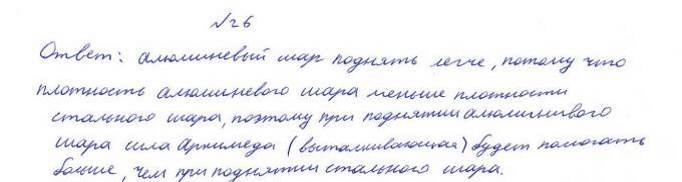 №26
Ответ: алюминевый шар поднять легче, потому что
плотность алюминевого шара меньше плотности
стального шара, поэтому при поднятии алюминивого
шара сила Архимеда (выталкивающая) будет помогать
больше, чем при поднятии стального шара.